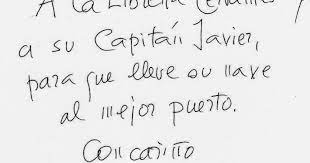 A la Librería Cervantes y
a su Capitán Javier,
para que lleve su nave
al mejor puerto.
Con cariño